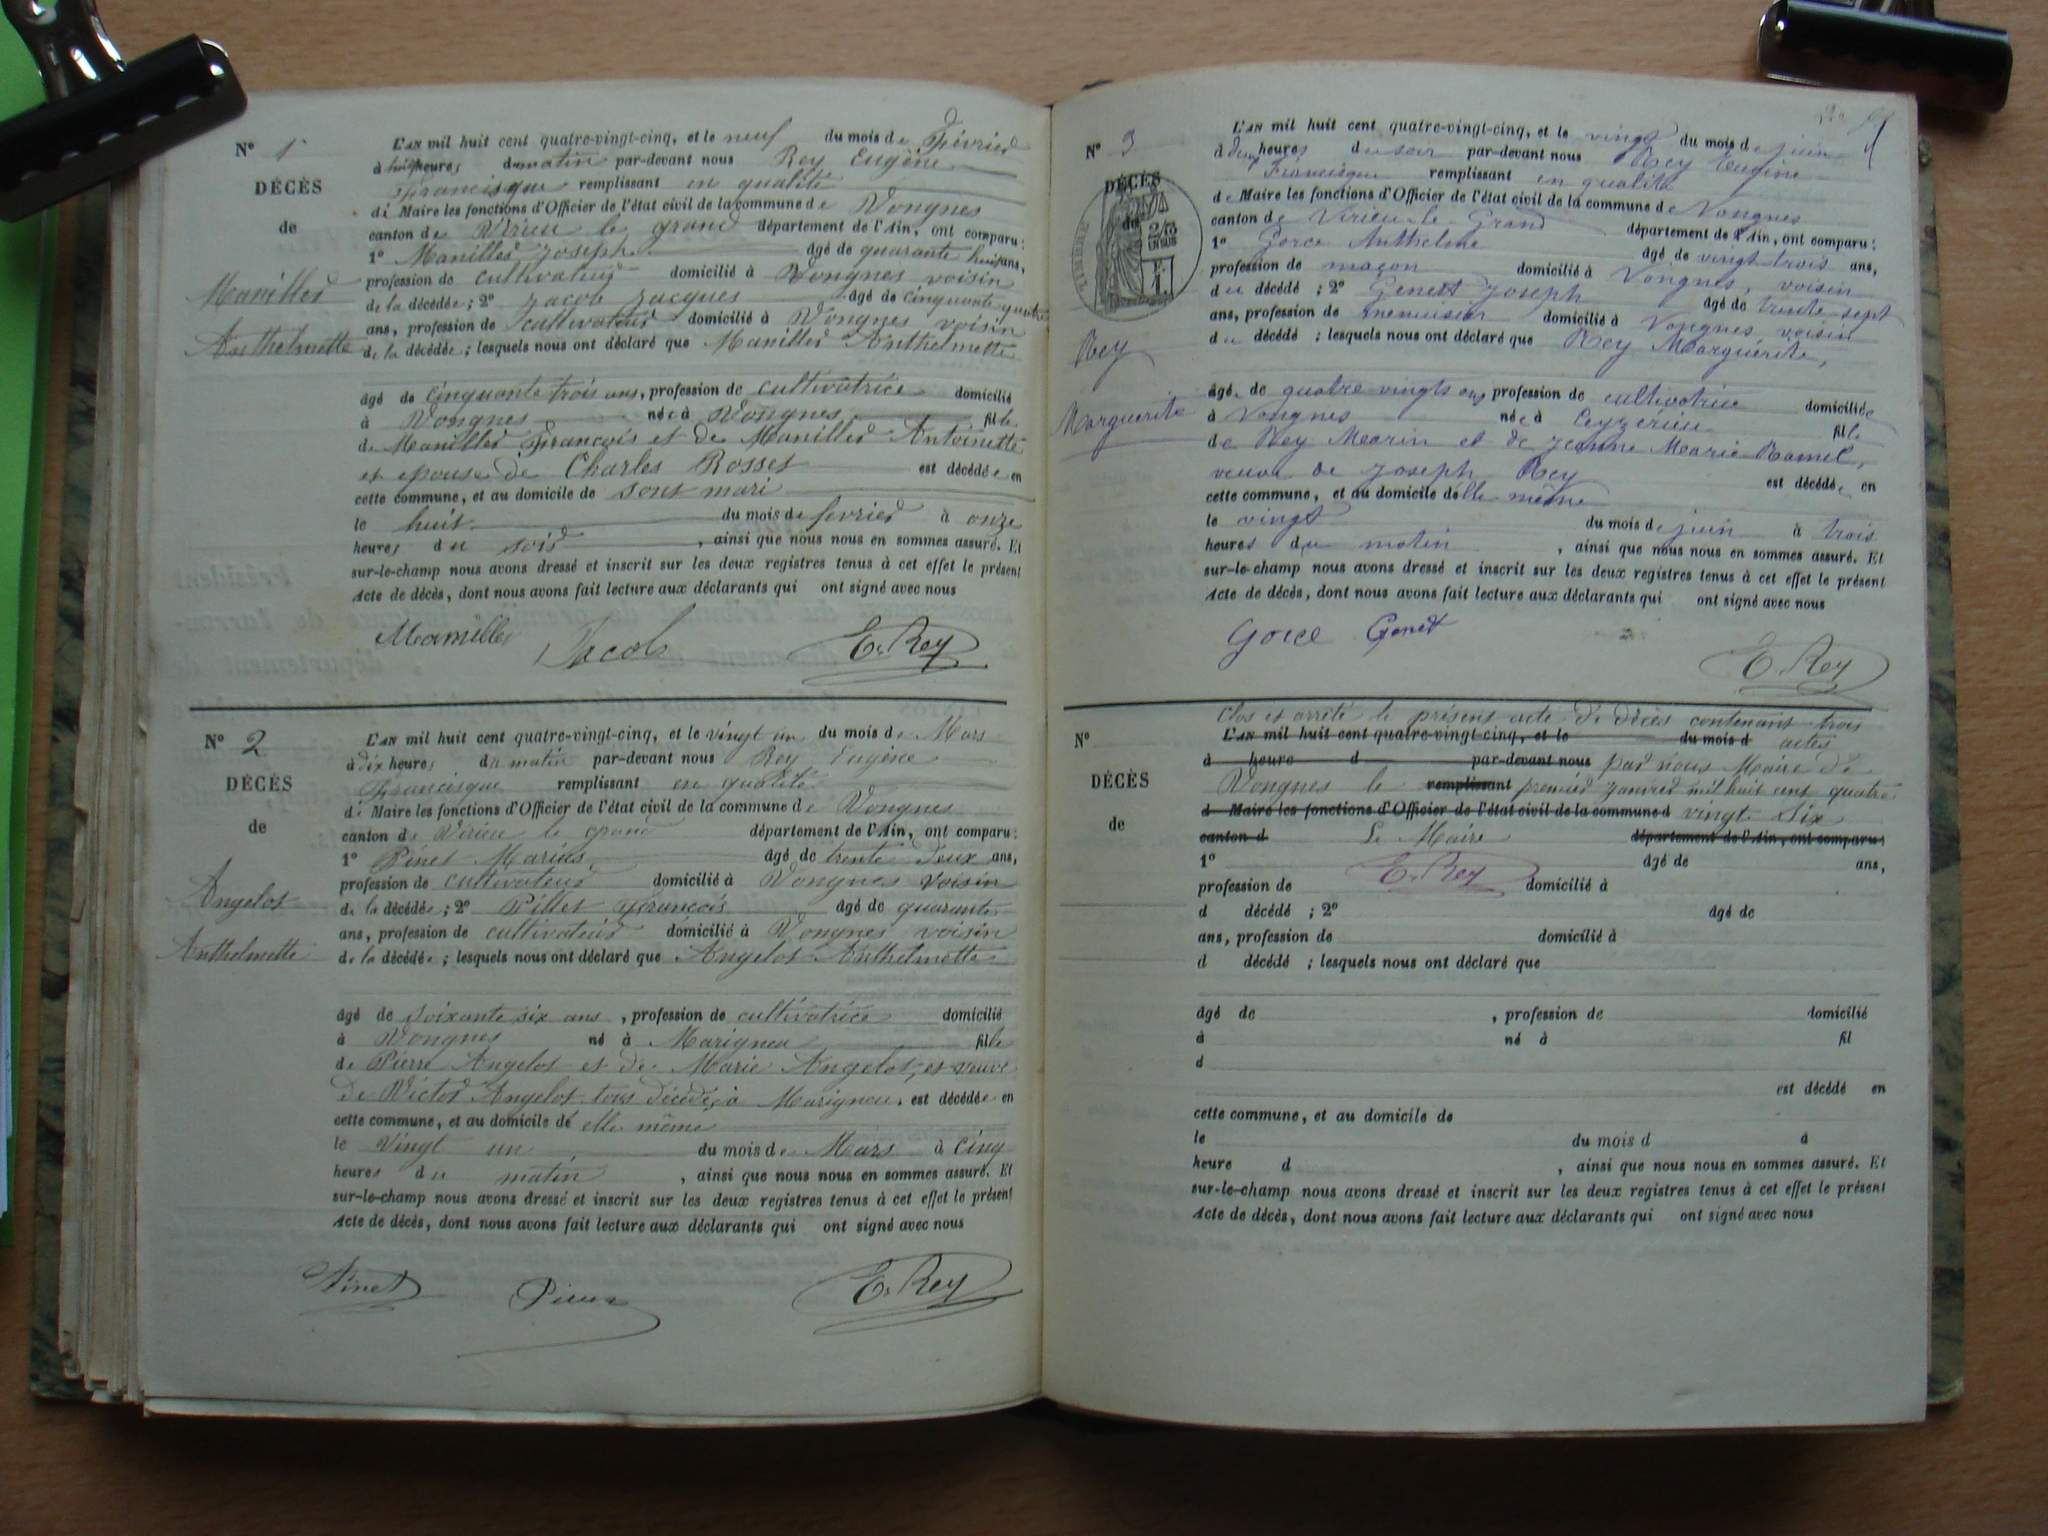 N° 1
DÉCÈS
de
Manillier
Anthelmette
L'AN mil huit cent quatre-vingt-cinq, et le neuf du mois de Février
à huit heures du matin par-devant nous Rey Eugène
Francisque remplissant en qualité
de Maire les fonctions d'Officier de l'état civil de la commune de Vongnes
canton de Virieu le grand département de l'Ain, ont comparu:
1° Manillier Joseph âgé de quarante huit ans,
profession de cultivateur domicilié à Vongnes voisin
de la décédée; 2° Jacob Jacques âgé de cinquante quatre
ans, profession de cultivateur domicilié à Vongnes voisin
de la décédée; lesquels nous ont déclaré que Manillier Anthelmette
âgé de cinquante trois ans, profession de cultivatrice domicilié
à Vongnes née à Vongnes fille
de Manillier François et de Manillier Antoinette
et epouse de Charles Rosset est décédée en
cette commune, et au domicile de sont mari
le huit du mois de fevrier à onze
heures du soir, ainsi que nous nous en sommes assuré. Et
sur-le-champ nous avons dressé et inscrit sur les deux registres tenus à cet effet le présent
Acte de décès, dont nous avons fait lecture aux déclarants qui ont signé avec nous
Manillier Jacob E. Rey
N° 2
DÉCÈS
de
Angelot
Anthelmette
L'AN mil huit cent quatre-vingt-cinq, et le vingt un du mois de Mars
à dix heures du matin par-devant nous Rey Eugène
Francisque remplissant en qualité
de Maire les fonctions d'Officier de l'état civil de la commune de Vongnes
canton de Virieu le grand département de l'Ain, ont comparu:
1° Pinet Marius âgé de trente deux ans,
profession de cultivateur domicilié à Vongnes voisin
de la décédée; 2° Pillet François âgé de quarante
ans, profession de cultivateur domicilié à Vongnes voisin
de la décédée; lesquels nous ont déclaré que Angelot Anthelmette
âgé de soixante six ans, profession de cultivatrice domicilié
à Vongnes né à Marignieu fille
de Pierre Angelot et de Marie Angelot, et veuve
de Victor Angelot tous décédé à Marignieu, est décédée en
cette commune, et au domicile de elle même
le vingt un du mois de Mars à cinq
heures du matin, ainsi que nous nous en sommes assuré. Et
sur-le-champ nous avons dressé et inscrit sur les deux registres tenus à cet effet le présent
Acte de décès, dont nous avons fait lecture aux déclarants qui ont signé avec nous
Pinet E. Rey
N° 3
DÉCÈS
de
TIMBRE
Rey
Marguerite
L'AN mil huit cent quatre-vingt-cinq, et le vingt du mois de juin
à deux heures du soir par-devant nous Rey Eugène
Francisque remplissant en qualité
de Maire les fonctions d'Officier de l'état civil de la commune de Vongnes
canton de Virieu-le-Grand département de l'Ain, ont comparu:
1° Gorce Anthelme âgé de vingt trois ans,
profession de maçon domicilié à Vongnes, voisin
du décédé; 2° Genest Joseph âgé de trente-sept
ans, profession de menuisier domicilié à Vongnes voisin
du décédé; lesquels nous ont déclaré que Rey Marguérite,
âgée de quatre vingts ans, profession de cultivatrice domiciliée
à Vongnes née à Ceyzérieu fille
de Rey Marin et de Jeanne Marie Ramel,
veuve de Joseph Rey est décédée en
cette commune, et au domicile d'elle même
le vingt du mois de juin à trois
heures du matin, ainsi que nous nous en sommes assuré. Et
sur-le-champ nous avons dressé et inscrit sur les deux registres tenus à cet effet le présent
Acte de décès, dont nous avons fait lecture aux déclarants qui ont signé avec nous
Gorce Genet
E. Rey
N°
DÉCÈS
de
Clos et arrêté le présent acte de décès contenant trois
L'AN mil huit cent quatre-vingt-cinq, et le du mois d actes
à heure d par-devant nous par nous Maire de
Vongnes le remplissant premier janvier mil huit cent quatre
d Maire les fonctions d'Officier de l'état civil de la commune d vingt six
canton d Le Maire département de l'Ain, ont comparu:
1° E. Rey âgé de ans,
profession de domicilié à
d décédé; 2° âgé de
ans, profession de domicilié à
d décédé; lesquels nous ont déclaré que
âgé de , profession de domicilié
à né à fil
d
est décédé en
cette commune, et au domicile de
le du mois d à
heure d , ainsi que nous nous en sommes assuré. Et
sur-le-champ nous avons dressé et inscrit sur les deux registres tenus à cet effet le présent
Acte de décès, dont nous avons fait lecture aux déclarants qui ont signé avec nous